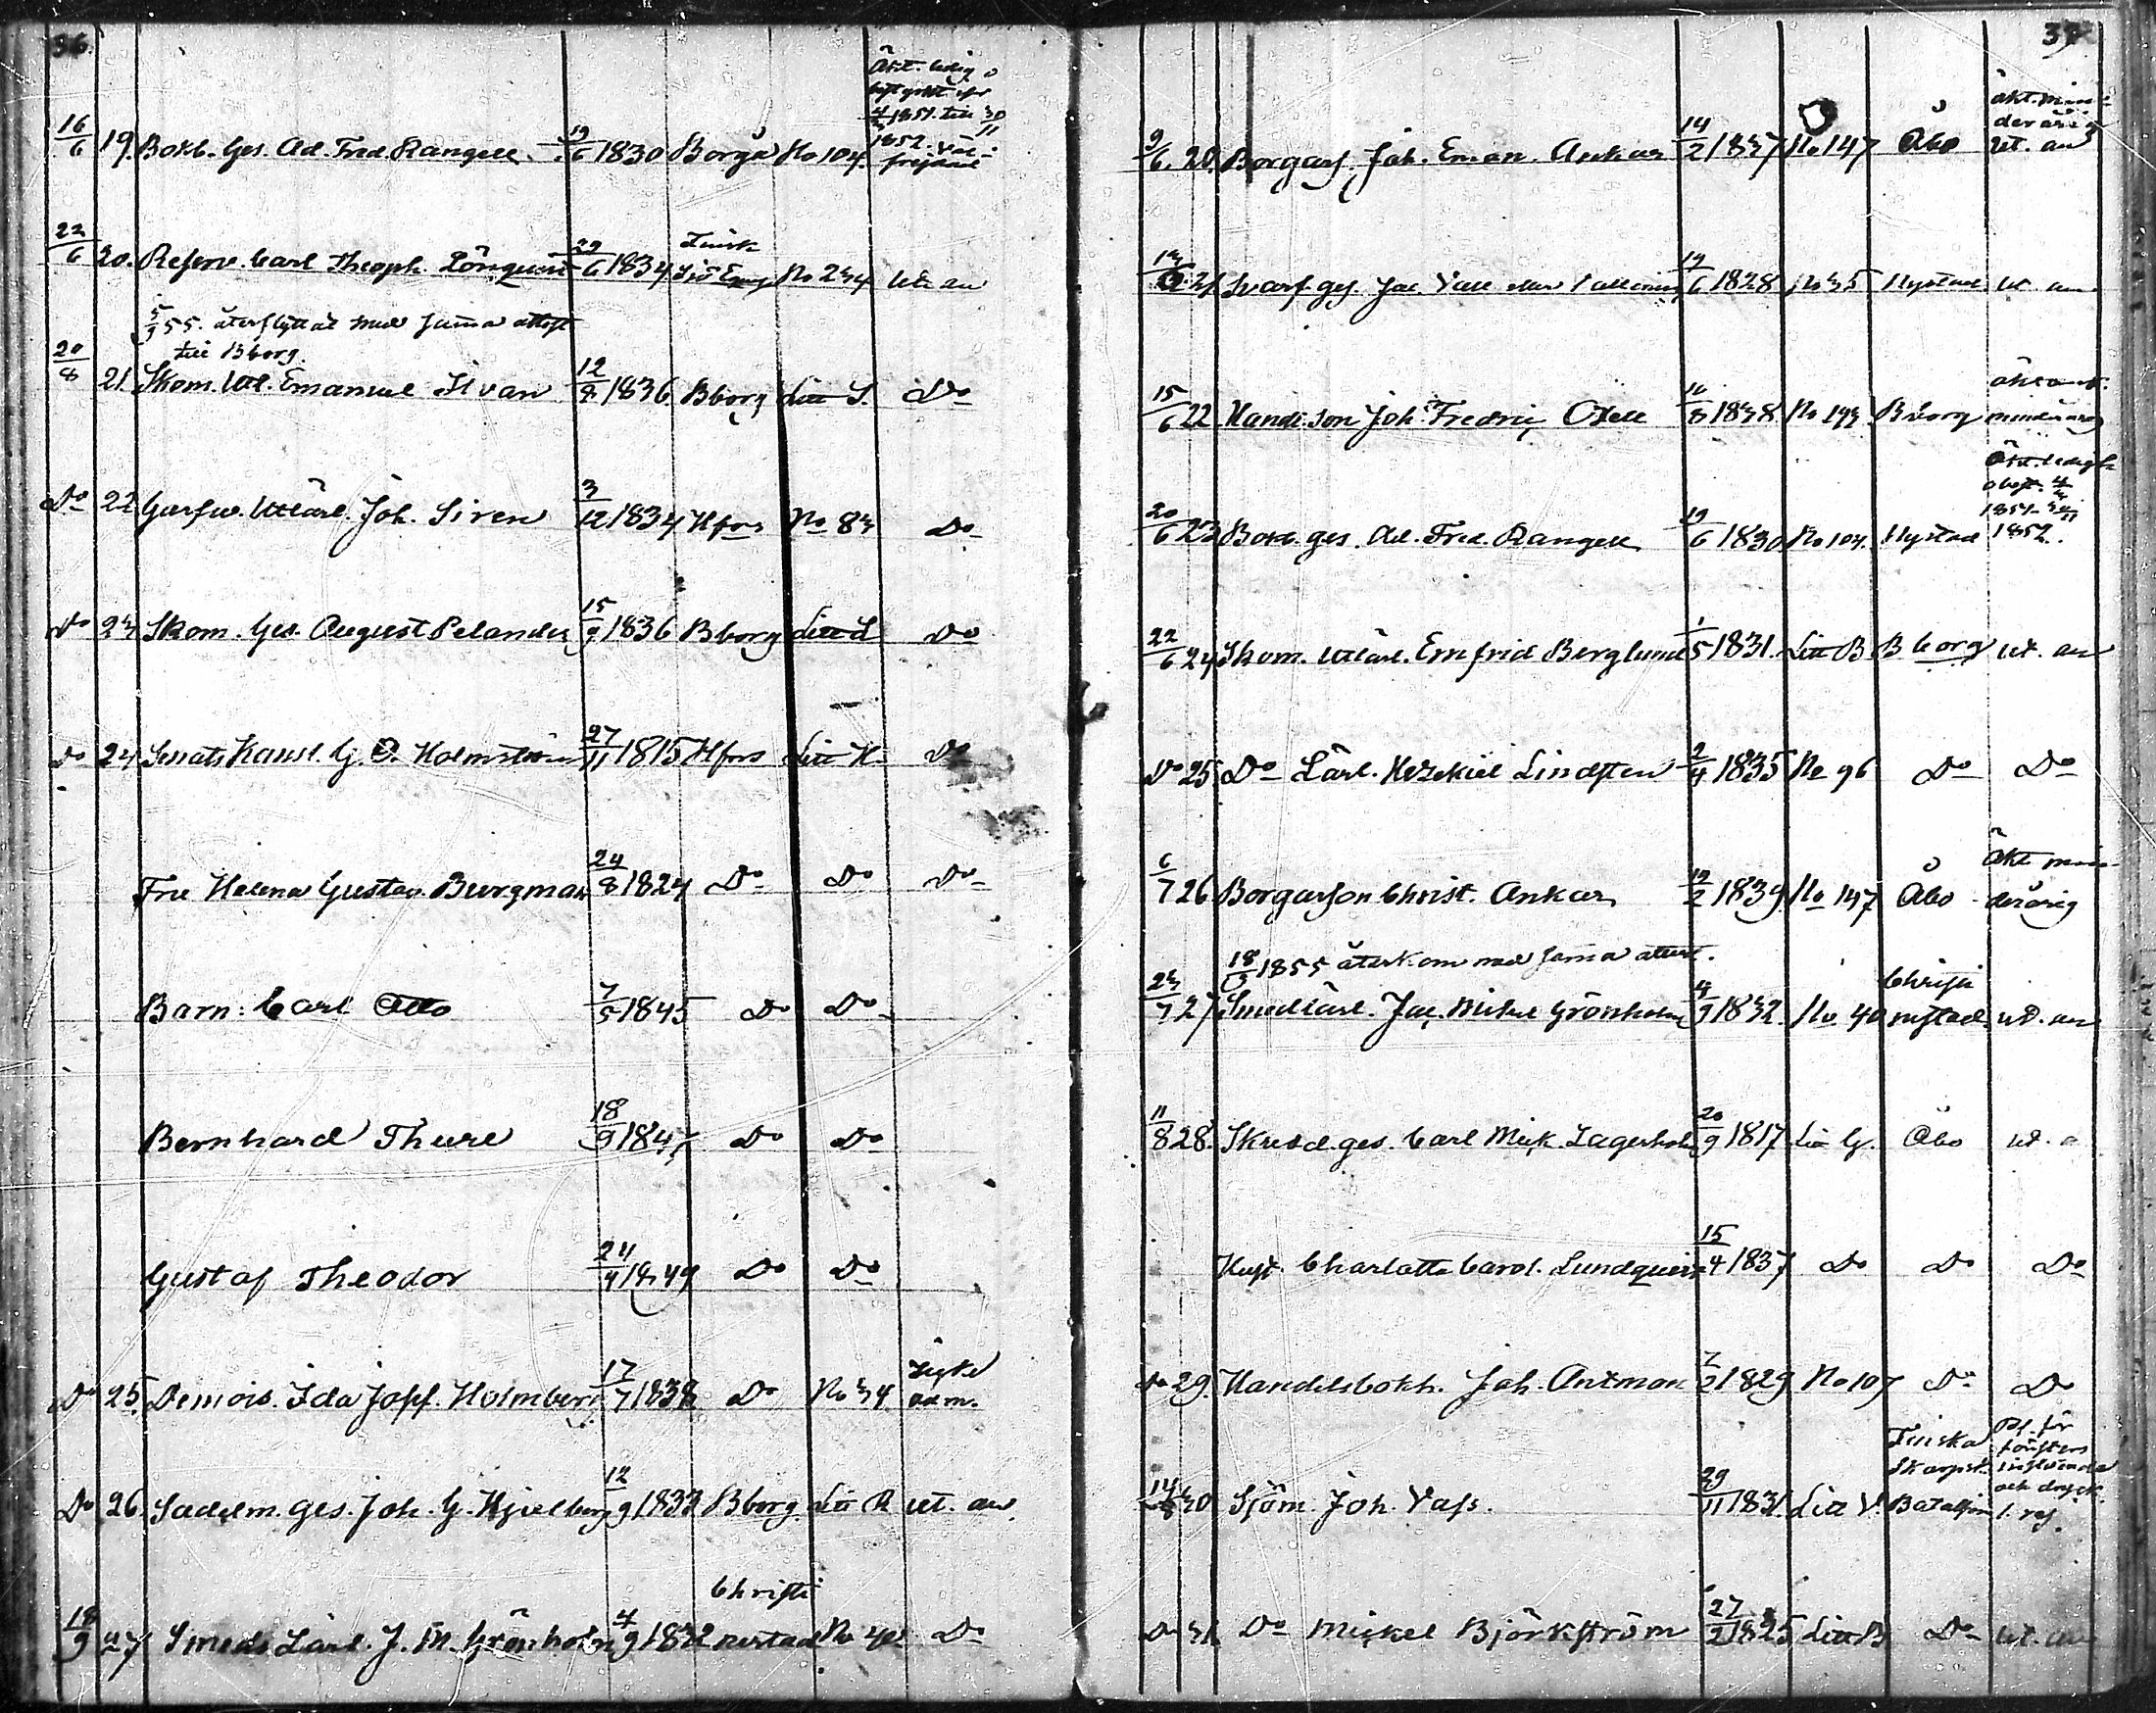 36.
Äkt. ledig o
1851. till 30/11
16/6 19. Bokb. Ges. Ad. Fred. Rangell. 19/6 1830 Borgå No 104. 1852. väl-
frejdad
22/6 20. Referv. Carl Theoph. Lönquist 29/6 1834 Finsk Sjö Eqvp No 234 ut. an
5/9 55. återflyttat med samma attest
till Bborg.
20/8 21. Skom. Utl. Emanuel Silvan 12/2 1836. Bborg Litt S. Do
Do 22 Garfve. Utlärl. Joh. Siren 3/12 1834 Hfors No 83 Do
Do 23 Skom. Ges. August Pelander 15/9 1836 Bborg Litt L Do
Do 24 Senats Kansl. G. O. Holmström 27/11 1815 Hfors Litt H. Do
Fru Helena Gustav. Burgman 24/8 1824 Do Do Do
Barn: Carl Otto 7/5 1845 Do Do
Bernhard Thure 18/9 1847 Do Do
Gustaf Theodor 24/4 1849 Do Do
Do 25. Demois. Ida Josef. Holmberg 17/7 1838 Do No 34
adm.
Do 26. Sadelm. ges. Joh. G. Hjelberg 12/9 1833 Bborg Litt R ut. an.
18/9 27 Smeds Lärl. J. M. Grönholm 4/9 1832 Christi
nestad No 40 Do
37
äkt. min-
derårig
9/6. 20. Borgars. Joh. Eman. Ankar 14/2 1837 No 147 Åbo ut. an
13/6 21 Svarf. ges. Jac. Vall eller Vallenius 19/6 1828 No 35 Nystad ut. an.
15/6 22 Handl. son Joh. Fredric Oxell 16/8 1838. No 193 Bborg minderårig
Äkt. ledigh.
1851- 30/11
20/6 23 Bokb. ges. Ad. Fred. Rangell 19/6 1830 No 104. Nystad 1852.
22/6 24 Skom. Utlärl. Emfrid Berglund 1/5 1831. Litt B Bborg ut. an
Do 25. Do Lärl. Hezekiel Lindsten 2/4 1835 No 96 Do Do
6/7 26 Borgarson Christ. Ankar 19/2 1839. No 147 Åbo Äkt min-
derårig
18/9 1855 återkom med samma attest.
23/7 27 Smedlärl. Jac. Mikel Grönholm 4/9 1832. No 40 Christi
nestad. ut. an
11/8 28. Skredd. ges. Carl Mick. Lagerholm 20/9 1817 Litt G. Åbo ut. a
Hust. Charlotta Carol. Lundqvist 15/4 1837 Do Do Do
Do 29. Handelsbokh. Joh. Antman 7/2 1829 No 107 Do Do
14/8 30 Sjöm. Joh. Vass. 29/11 1831. Litt V. Finska
Skarpsk.
Bataljon
Do 31. Do Mickel Björkström 27/2 1825 Litt B Do ut. an